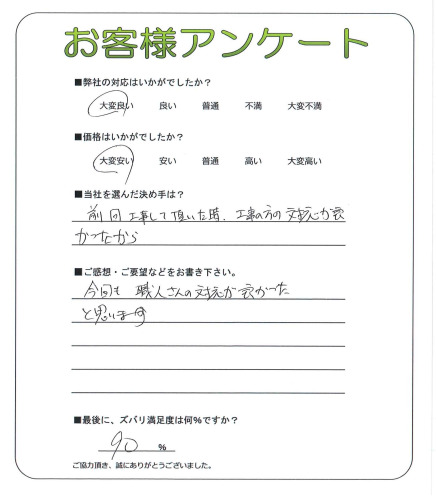 お客様アンケート
■弊社の対応はいかがでしたか?
大変良い 良い 普通 不満 大変不満
■価格はいかがでしたか?
大変安い 安い 普通 高い 大変高い
■当社を選んだ決め手は?
前回工事して頂いた時、工事の方の対応が良
かったから
■ご感想・ご要望などをお書き下さい。
今回も職人さんの対応が良かった
と思います
■最後に、ズバリ満足度は何%ですか?
90 %
ご協力頂き、誠にありがとうございました。